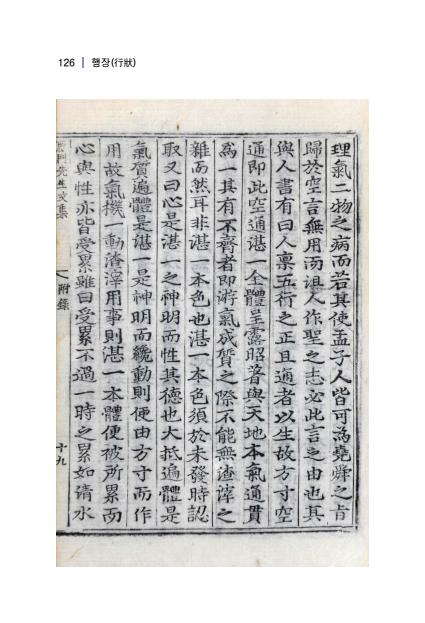 126 | 행장(行狀)
理氣二物之病而若其使孟子人皆可爲堯舜之旨
歸於空言無用而沮人作聖之志必此言之由也其
與人書有曰人稟五行之正且通者以生故方寸空
通卽此空通湛一全體呈露昭著與天地本氣通貫
爲一其有不齊者卽游氣成質之際不能無渣滓之
雜而然耳非湛一本色也湛一本色須於未發時認
取又曰心是湛一之神明而性其德也大抵遍體是
氣質遍體是湛一是神明而纔動則便由方寸而作
用故氣機一動渣滓用事則湛一本體便被所累而
心與性亦皆受累雖曰受累不過一時之累如淸水
先生文集
附錄
十九